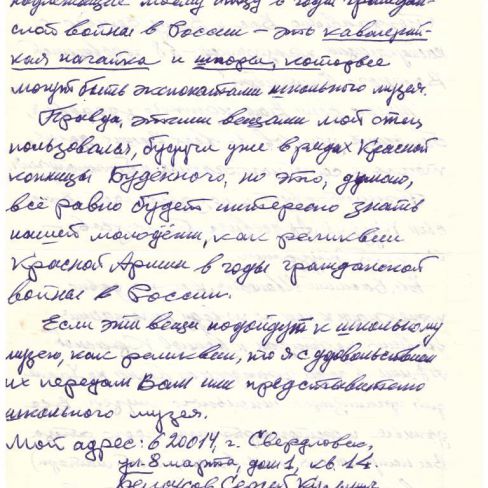 моему отцу в годы граждан-
ской войне в России – эти кавалерий-
ская нагайка и шпоры, которые
могут быть экспонатами школьного музея.
Правда, этими вещами мой отец
пользовался, будучи уже в рядах Красной
конницы Будённого, но это, думаю,
всё равно будет интересно знать
нашей молодёжи, как реликвии
Красной Армии в годы гражданской
войне в России.
Если эти вещи подойдут к школьному
музею, как реликвии, то я с удовольствием
их передам Вам или представителю
школьного музея.
Мой адрес: 620014, г. Свердловск,
ул. 8 марта, дом 1, кв. 14.
Сергей